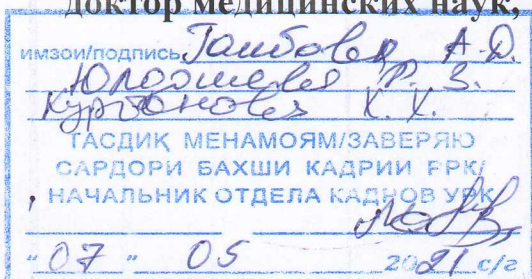 доктор медицинских наук,
имзои/подпись Гаибова А.Д.
Юлдошева Р. З.
Курбанова Х. Х.
ТАСДИҚ МЕНАМОЯМ/ЗАВЕРЯЮ
САРДОРИ БАХШИ КАДРИИ РРК/
НАЧАЛЬНИК ОТДЕЛА КАДРОВ УРК
"07" 05 2021 с/г